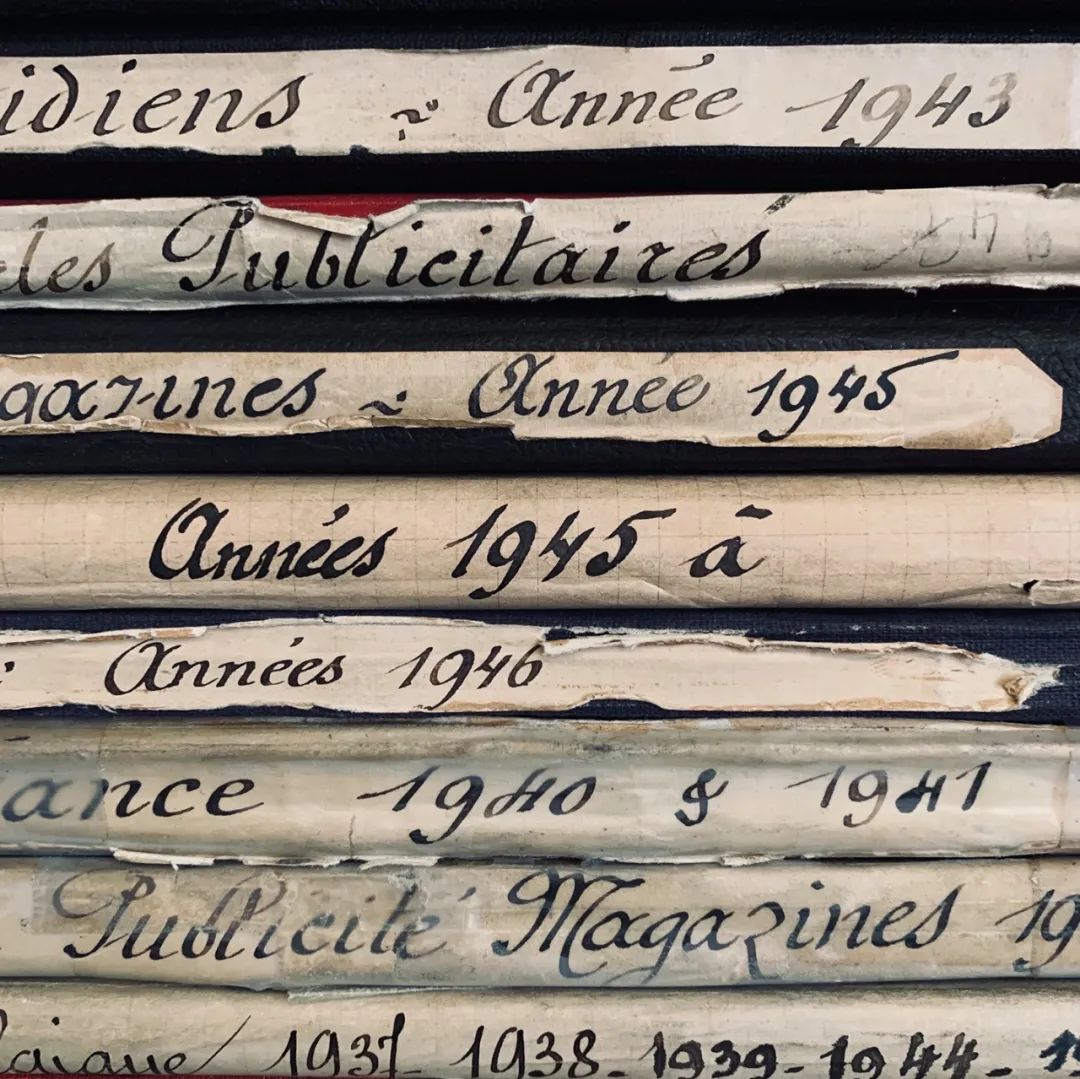 idiens ~ Année 1943
les Publicitaires
gazines ~ Année 1945
Années 1945 à
: Années 1946
ance 1940 & 1941
Publicité Magazines 19
1937 - 1938 - 1939 - 1944 -